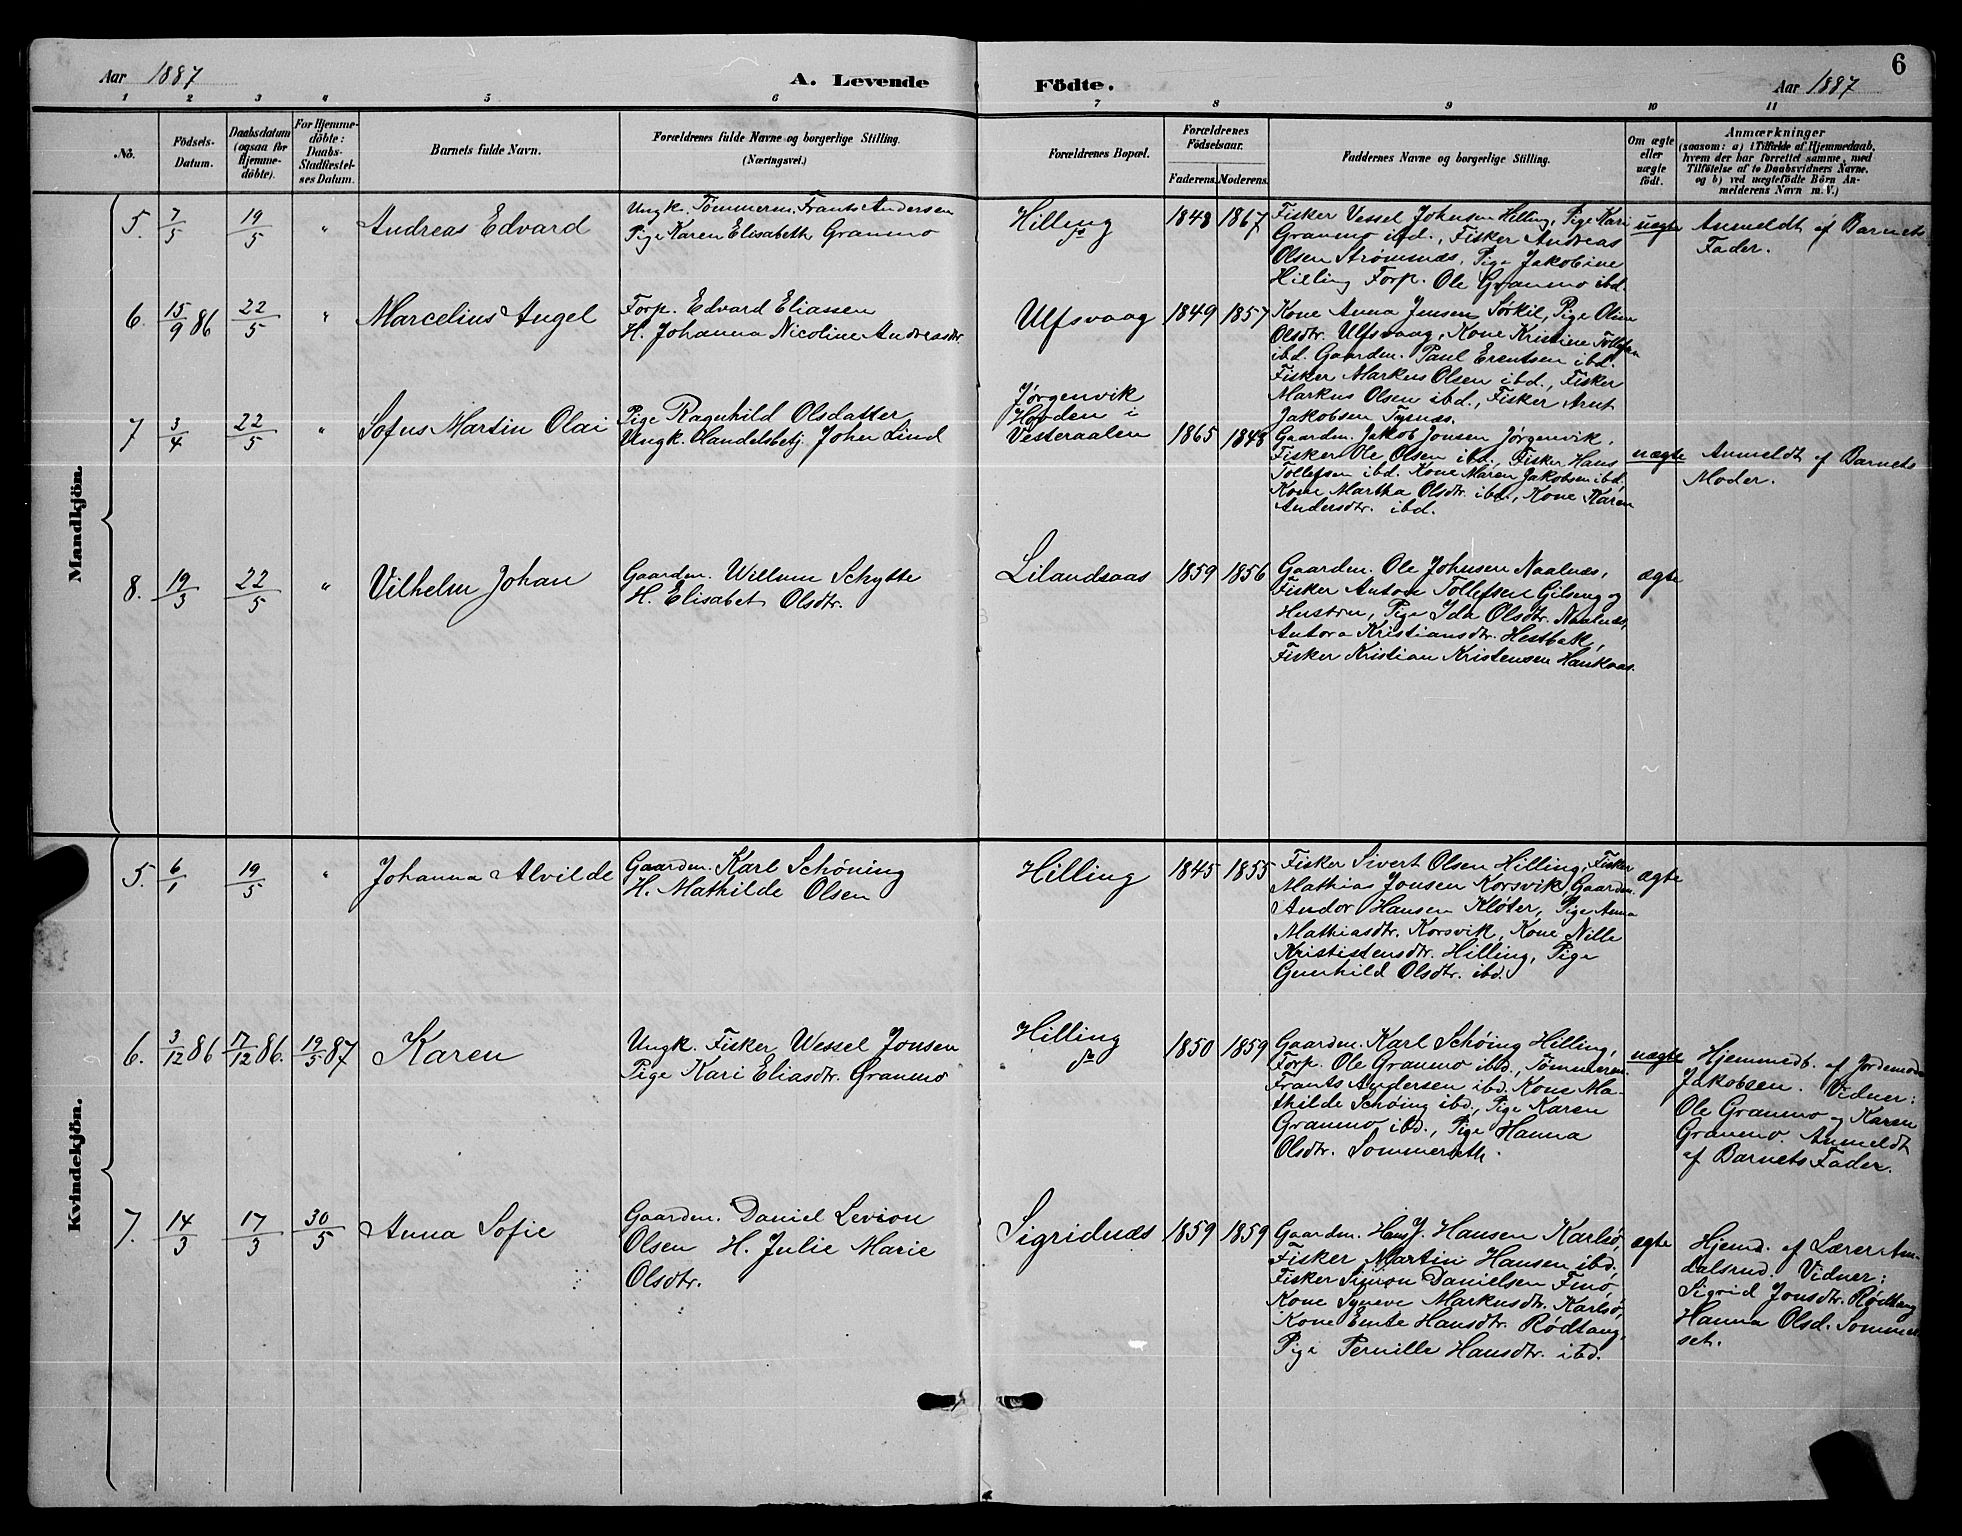 Aar 1887
A. Levende
Födte.
Aar 1887
6
1 2 3 4 5 6 7 8 9 10 11
No.
Födsels-
Datum.
Daabsdatum
(ogsaa for
Hjemme-
döbte).
For Hjemme-
döbte:
Daabs-
Stadfæstel-
ses Datum.
Barnets fulde Navn.
Forældrenes fulde Navne og borgerlige Stilling.
(Næringsvei.)
Forældrenes Bopæl.
Forældrenes
Födselsaar.
Faderens. Moderens.
Faddernes Navne og borgerlige Stilling.
Om ægte
eller
uægte
födt.
Anmærkninger
(saasom: a) i Tilfælde af Hjemmedaab,
hvem der har forrettet samme, med
Tilföielse af to Daabsvidners Navne.
og b) ved uægtefödte Börn An-
melderens Navn m. V.)
Mandkjön.
5. 7/5 19/5 " Andreas Edvard
Ungk. Tömmerm. Frants Andersen
Pige Karen Elisabeth Granmo
Hilling
1848 1867
Fisker Vessel Johnsen Hilling, Pige Kari
Granmo ibd., Fisker Andreas
Olsen Strømnæs, Pige Jakobine
Hilling Forp. Ole Granmo ibd.
uægte
Anmeldt af Barnets
Fader.
6. 15/9 86 22/5 " Marcelius Angel
Forp. Edvard Eliassen
H. Johanna Nicoline Andreasdtr.
Ulfsvaag
1849 1857
Kone Anna Jensen Sørkil, Pige Oline
Olsdtr. Ulfsvaag, Kone Kristine Tollefsen
ibd. Gaardm. Paul Erentsen ibd.
Fisker Markus Olsen ibd., Fisker
Markus Olsen ibd., Fisker Arnt
Jakobsen Tysnæs.
7 3/4 22/5 " Sofus Martin Olai
Pige Ragnhild Olsdatter
Ungk. Handelsbetj. Johan Lind
Jørgenvik
i
Vesteraalen
1865 1848
Gaardm. Jakob Jonsen Jørgenvik,
Fisker Ole Olsen ibd., Fisker Hans
Tollefsen ibd. Kone Maren Jakobsen ibd.
Kone Martha Olsdtr. ibd., Kone Karen
Andersdtr. ibd.
uægte
Anmeldt af Barnets
Moder.
8. 19/3 22/5 " Vilhelm Johan
Gaardm. Willum Schytte
H. Elisabet Olsdtr.
Lilandsaas
1859 1856
Gaardm. Ole Johnsen Naalnæs,
Fisker Anton Tollefsen Gilseng og
Hustru, Pige Ida Olsdtr. Naalnæs,
Antora Kristiansdtr. Hestbakk,
Fisker Kristian Kristensen Haukaas.
ægte
Kvindekjön.
5. 6/1 19/5 " Johanna Alvilde
Gaardm. Karl Schöning
H. Mathilde Olsen
Hilling
1845 1855
Fisker Sivert Olsen Hilling, Fisker
Mathias Jonsen Korsvik, Gaardm.
Andor Hansen Kløter, Pige Anna
Mathiasdtr. Korsvik, Kone Nille
Krististensdtr. Hilling, Pige
Gunhild Olsdtr. ibd.
ægte
6. 3/12 86 7/12 86. 19/5 87 Karen
Ungk. Fisker Wessel Jonsen
Pige Kari Eliasdtr. Granmo
Hilling
1850 1859
Gaardm. Karl Schøing Hilling,
Forp. Ole Granmo ibd., Tömmerm.
Frants Andersen ibd. Kone Ma-
thilde Schøing ibd., Pige Karen
Granmo ibd., Pige Hanna
Olsdtr. Sommerseth.
uægte
Hjemmedb. af Jordemoder
Jakobsen. Vidner:
Ole Granmo og Karen
Granmo. Anmeldt
af Barnets Fader.
7. 14/3 17/3 30/5 Anna Sofie
Gaardm. Daniel Levion
Olsen H. Julie Marie
Olsdtr.
Sigridnæs
1859 1859
Gaardm. Hans J. Hansen Karlsö,
Fisker Martin Hansen ibd,
Fisker Simon Danielsen Finö,
Kone Syneve Markusdtr. Karlsö,
Kone Ernte Hansdtr. Rödtang,
Pige Pernille Hansdtr. ibd.
ægte
Hjemd. af Lærer Am-
dalsrud. Vidner:
Sigrid Jonsdtr. Rödtang
Hanna Olsd. Sommer-
set.